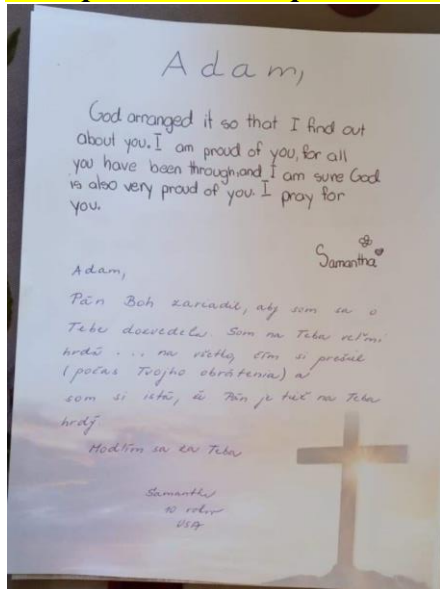 Adam,
God arranged it so that I find out
about you. I am proud of you, for all
you have been through, and I am sure God
is also very proud of you. I pray for
you.
Samantha
Adam,
Pán Boh zariadil, aby som sa o
Tebe dozvedela. Som na Teba veľmi
hrdá ... na všetko, čím si prešiel
(počas Tvojho obrátenia) a
som si istá, že Pán je tiež na Teba
hrdý.
Modlím sa za Teba
Samantha
10 rokov
USA